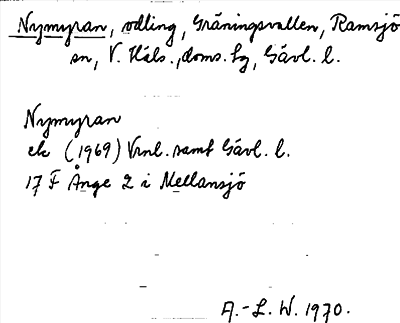 Nymyran, odling, Gräningsvallen, Ramsjö
sn, V. Häls., doms. fg, Gävl. l.
Nymyran
ek (1969) Vml. samf Gävl. l.
17 F Ånge 2 i Mellansjö
A.-L. W. 1970.